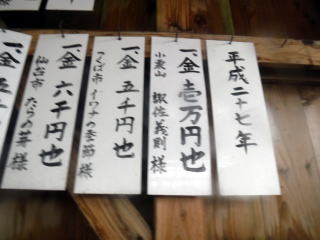 平成二十七年
一、金 壱万円也
小東山 諏佐義則様
一、金 五千円也
つくば市 イワナの季節様
一、金 六千円也
仙台市 たらの芽様
一、金 五